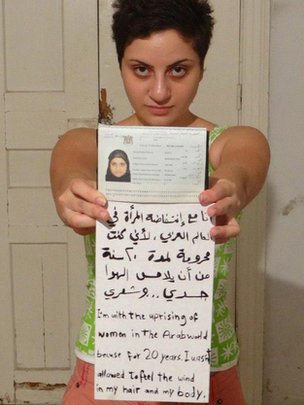 أنا مع إنتفاضة المرأة في
العالم العربي، لأني كنت
محرومة لمدة ٢٠ سنة
من أن يلامس الهوا
جسدي .. و شعري
I'm with the uprising of
women in the Arab world
because for 20 years. I wasn't
allowed to feel the wind
in my hair and my body.